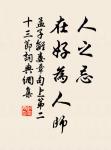 人之忌
在好為人師
孟子離婁章句上第二
十三節詞典網集